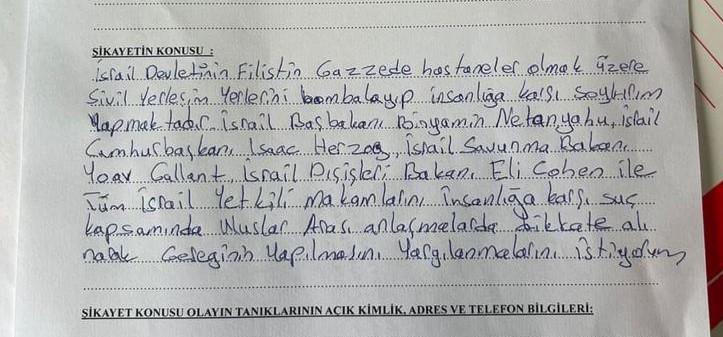 ŞİKAYETİN KONUSU :
İsrail Devletinin Filistin Gazzede hastaneler olmak üzere
Sivil Yerleşim Yerlerini bombalayıp insanlığa karşı Soykırım
Yapmaktadır. İsrail Başbakanı Binyamin Netanyahu, İsrail
Cumhurbaşkanı Isaac Herzog, İsrail Savunma Bakanı
Yoav Gallant, İsrail Dışişleri Bakanı Eli Cohen ile
Tüm İsrail Yetkili makamlarını İnsanlığa karşı suç
kapsamında Uluslar Arası anlaşmalarda dikkate alı
narak Gereğinin Yapılmasını Yargılanmalarını istiyorum
ŞİKAYET KONUSU OLAYIN TANIKLARININ AÇIK KİMLİK, ADRES VE TELEFON BİLGİLERİ: